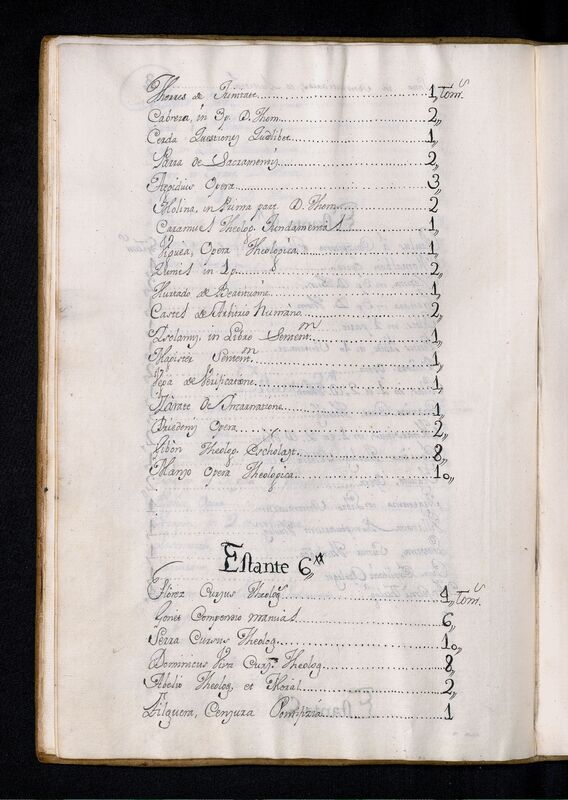 Thorres de Trinitate 1,, Tom.s
Cabrera, in 3p. D. Thom. 2,,
Cerda Questiones Quodlibet 1,,
Parra de Sacramentis 2,,
Egidius Opera 3,,
Molina, in Prima part. D. Thom. 2
Caramuel Theolog. Fundamental 1,,
Viguea, Opera Theologica 1,,
in 1p. 2,,
Hurtado de Beatitudine 1
Castel de Arbitrio humano 2,,
in Libro Sentent.m 1,,
Magister Sentent.m 1,,
Vega de Iustificatione 1,,
Zarate De Incarnatione 1,,
Driedonis Opera 2,,
Gibon Theolog. Scholast. 8,,
Manso Opera Theologica 10,,
Estante 6,,
Florez Cursus Theolog.s 4,, Tom.s
Gonet Compendio manual 6,,
Serra Cursus Theolog. 10,,
Dominicus Viva Curs. Theolog. 8,,
Abelio Theolog. et Moral 2,,
Filguera, Censura Pontificia 1